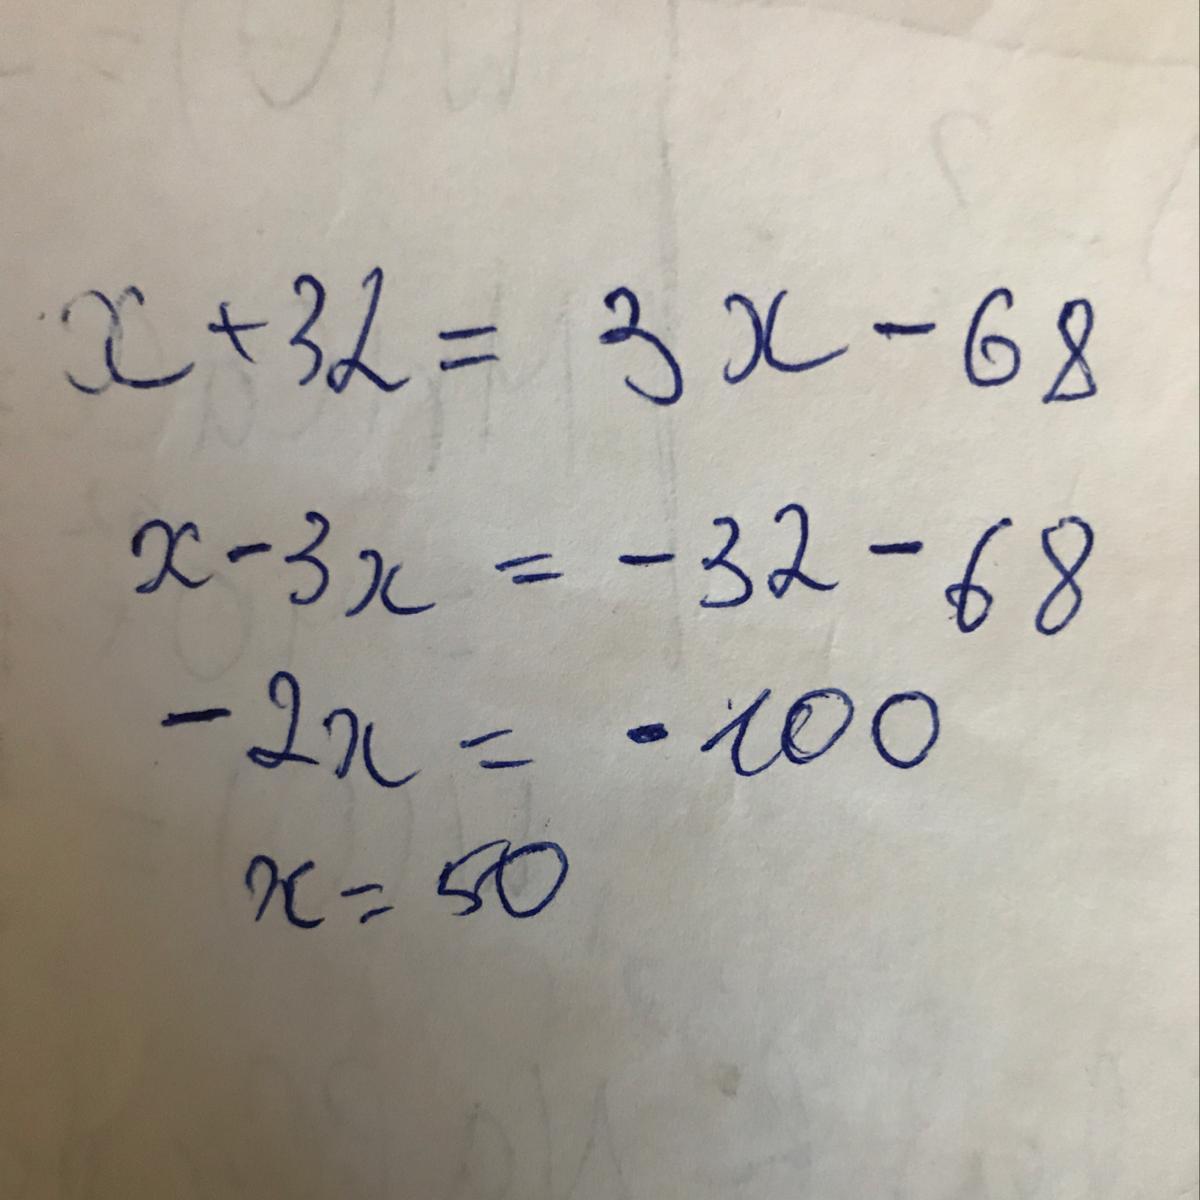 x + 32 = 3x - 68
x - 3x = - 32 - 68
- 2x = - 100
x = 50